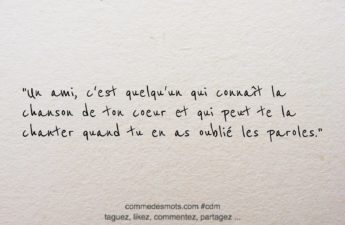 "Un ami, c'est quelqu'un qui connaît la
chanson de ton coeur et qui peut te la
chanter quand tu en as oublié les paroles."
commedesmots.com #cdm
taguez, likez, commentez, partagez ...